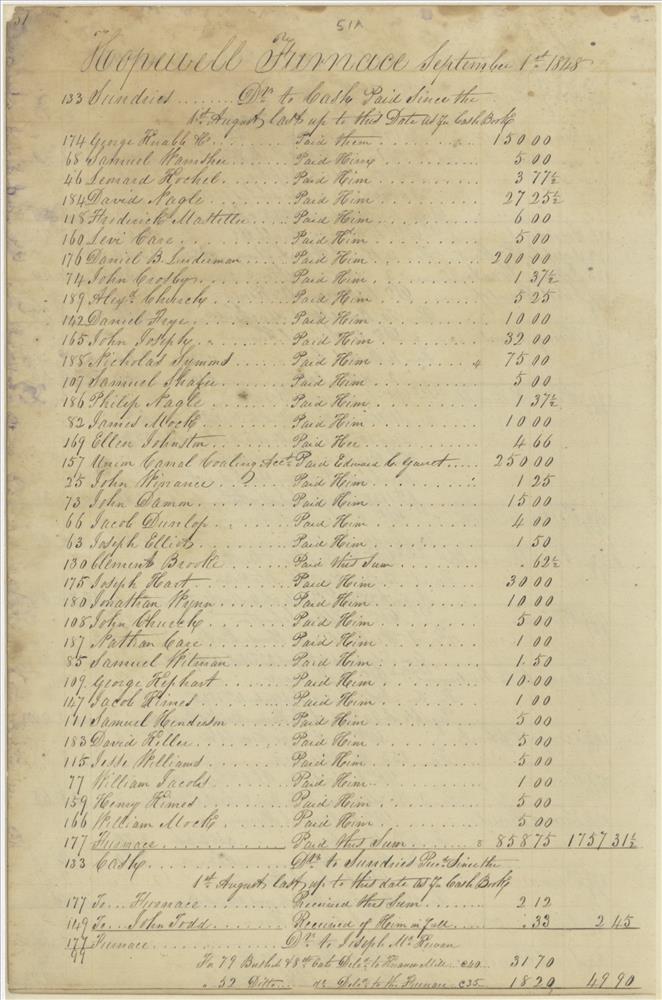 51
51A
Hopewell Furnace September 1st 1848
133 Sundries ........ Drs to Cash Paid Since the
1st August last up to this Date as Per Cash Book
174 George Knabb & Co ...... Paid them ......... 150 00
68 Samuel Wamsher ...... Paid Him ......... 5 00
46 Leonard Hochel ...... Paid Him ......... 3 77½
184 David Nagle ...... Paid Him ......... 27 25½
118 Fredrick Mastetter .... Paid Him ......... 6 00
160 Levi Care ...... Paid Him ......... 5 00
176 Daniel B. Luderman .... Paid Him ......... 200 00
74 John Crosby ...... Paid Him ......... 1 37½
189 Alexr. Church ...... Paid Him ......... 5 25
142 Daniel Frye ...... Paid Him ......... 10 00
165 John Joseph ...... Paid Him ......... 32 00
188 Nicholas Symond .... Paid Him ......... 75 00
107 Samuel Shafer ...... Paid Him ......... 5 00
186 Philip Nagle ...... Paid Him ......... 1 37½
82 James Mock ...... Paid Him ......... 10 00
169 Ellen Johnston ...... Paid Her ......... 4 66
157 Union Canal Coaling Acct. Paid Edward C. ..... 250 00
25 John Winance .. ? ... Paid Him ......... 1 25
73 John Damon ...... Paid Him ......... 15 00
66 Jacob Dunlop ...... Paid Him ......... 4 00
63 Joseph Elliot ...... Paid Him ......... 1 50
130 Clement Brooke .... Paid this Sum ......... . 62½
175 Joseph Hart ...... Paid Him ......... 30 00
180 Jonathan Wynn ...... Paid Him ......... 10 00
108 John Church ...... Paid Him ......... 5 00
187 Nathan Care ...... Paid Him ......... 1 00
85 Samuel Witman ...... Paid Him ......... 1.50
109 George Kephart ...... Paid Him ......... 10.00
147 Jacob Himes ...... Paid Him ......... 1 00
111 Samuel Henderson .... Paid Him ......... 5 00
183 David Hiller ...... Paid Him ......... 5 00
115 Jesse Williams ...... Paid Him ......... 5 00
77 William Jacobs ...... Paid Him ......... 1 00
159 Henry Himes ...... Paid Him ......... 5 00
166 William Mock ...... Paid Him ......... 5 00
177 Furnace ............ Paid this Sum ..... 8 858 75 1757 31½
133 Cash ............ Dr to Sundries Since the
1st August last up to this date as Per Cash Book
177 To .. Furnace ...... Received this Sum ...... 2 12
149 To .. John Todd ...... Received of Him in full .... .33 2 45
177 Furnace ............ Dr to Joseph Mc
99
For 79 Bushels & 8 Oats Deld. to @40 .. 31 70
" 52 Ditto .... do Deld. to the Furnace @35 .. 18 20 49 90